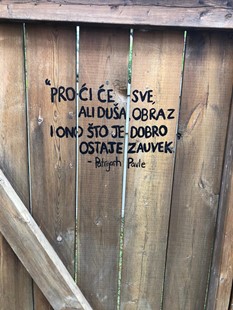 "PROĆI ĆE SVE,
ALI DUŠA, OBRAZ
I ONO ŠTO JE DOBRO
OSTAJE ZAUVEK
- Patrijarh Pavle